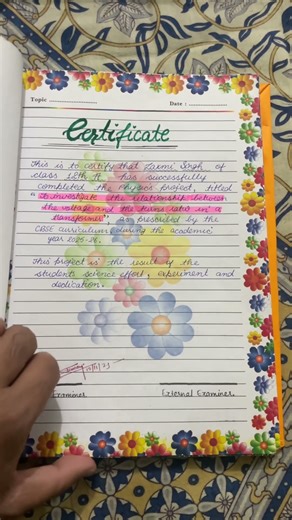 Topic
Date :
Certificate
This is to certify that Laxmi Singh of
class 12th A has successfully
completed the Physics project, titled
" To investigate the relationship between
the voltage and the turns ratio in a
transformer", as prescribed by the
CBSE curriculum during the academic
year 2025-26.
This project is the result of the
student's science effort, experiment and
dedication.
Examiner
External Examiner